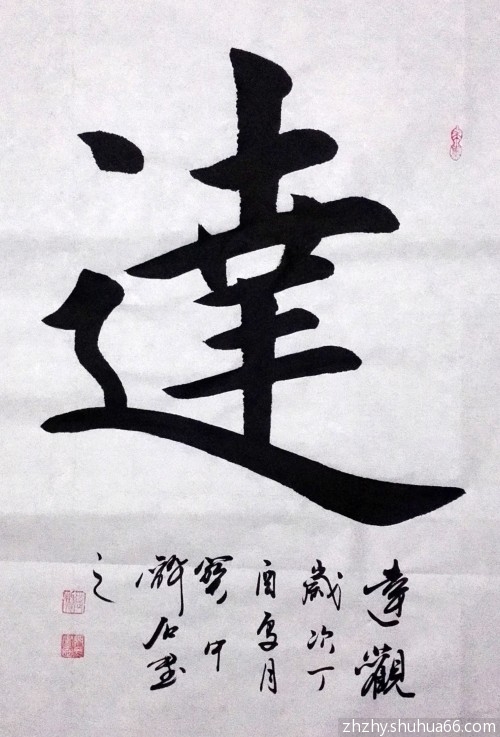 達
達觀
歲次丁
酉夏月
寶中
石墨
之
zhzhyshuhua66.com